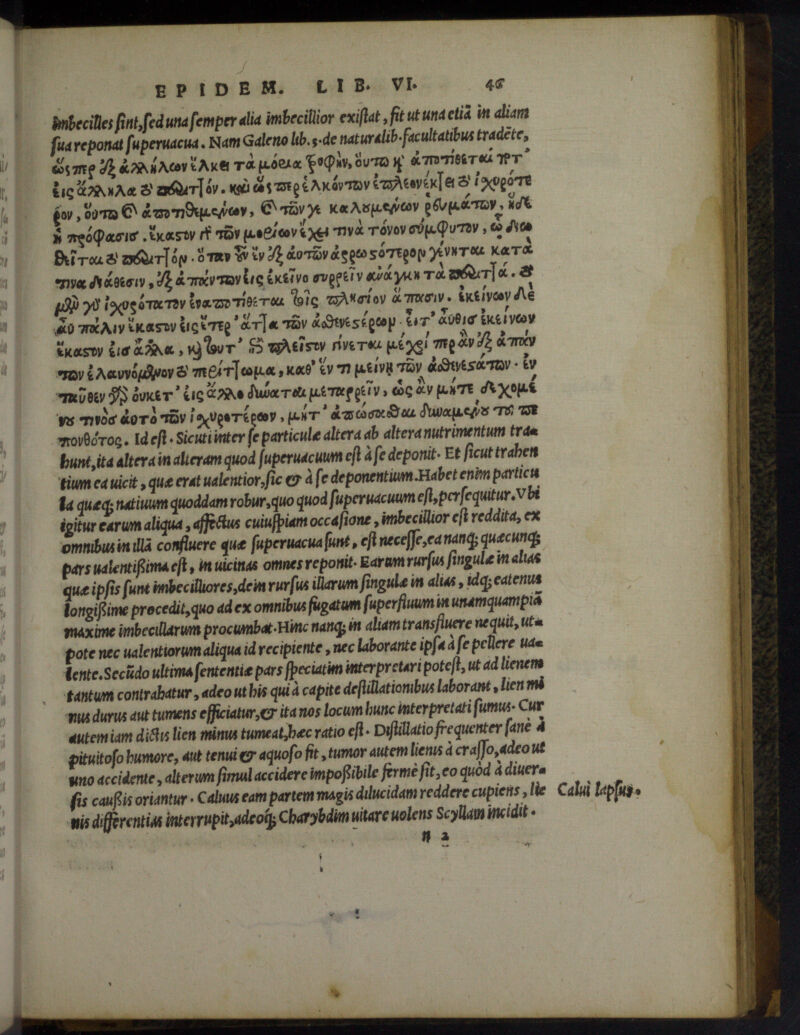 EPIDEM. LIB. VI. 46
imbecilles sint, sed una semper alia imbecillior existat, fit ut una etiã in aliam
sua reponat superuacua. Nam Galeno lib. 3. de naturalib. facultatibus tradete,
ὥσπερ γὰρ ἀλλήλων ἕλκει τὰ μόρια τροφὴν, οὕτω κỳ ἀποτίθεται ποτ'
εἰς ἄλληλα τὸ περιττὸν. καὶ ὥσπερ ἑλκόντων ἐπλεονέκτει τὸ ἰσχυρότε
ρον, οὕτω καὶ ἀποτιθεμένων, καὶ τῶν γε καλουμένων ῥευμάτων, ἥδε
ἡ πρόφασις. ἕκαστον τῶν μορίων ἔχει τινὰ τόνον σύμφυτον, ᾧ διω
θεῖται τὸ περιττὸν. ὅταν οὖν ἓν ἐξ αὐτῶν ἀῤῥωστότερον γένηται κατὰ
τινα διάθεσιν, ἐξ ἁπάντων εἰς ἐκεῖνο συῤῥεῖν ἀνάγκη τὰ περιττά. τὸ
μὲν γὰρ ἰσχυρότατον ἐναποτίθεται τοῖς πλησίον ἅπασιν. ἐκείνων δὲ
αὖ πάλιν ἕκαστον εἰς ἕτερ' ἄττα τῶν ἀσθενεστέρων. εἶτ' αὖθις ἐκείνων
ἕκαστον εἰς ἄλλα, καὶ τοῦτ' ἐπὶ πλεῖστον γίνεται μέχρι περ ἂν ἐξ ἁπάν
των ἐλαυνόμενον τὸ περίττωμα, καθ' ἕν τι μείνῃ τῶν ἀσθενεστάτων. ἐν
ταῦθεν γὰρ οὐκέτ' εἰς ἄλλο δύναται μεταῤῥεῖν, ὡς ἂν μήτε δεχομέ
νου τινὸς αὐτὸ τῶν ἰσχυροτέρων, μήτ' ἀπώσασθαι δυναμένου τοῦ πε
πονθότος. Id est. Sicuti inter se particulæ altera ab altera nutrimentum tra-
hunt, ita altera in alteram quod superuacuum est à se deponit. Et sicut trahen
tium ea uicit, quæ erat ualentior, sic & à se deponentium. Habet enim particu
la quæq; natiuum quoddam robur, quo quod superuacuum est, persequitur. Vbi
igitur earum aliqua, affectus cuiuspiam occasione, imbecillior est reddita, ex
omnibus in illã confluere quæ superuacua sunt, est necesse, ea nanq; quæcunq;
pars ualentißima est, in uicinas omnes reponit. Earum rursus singulæ in alias
quæ ipsis sunt imbecilliores, dein rursus illarum singulæ in alias, idq; eatenus
longißime procedit, quo ad ex omnibus fugatum superfluum in unamquampiã
maxime imbecillarum procumbat. Hinc nanq; in aliam transfluere nequit, ut-
pote nec ualentiorum aliqua id recipiente, nec laborante ipsa à se pellere ua-
lente. Secũdo ultima sententiæ pars speciatim interpretari potest, ut ad lienem
tantum contrahatur, adeo ut his qui à capite destillationibus laborant, lien mi
nus durus aut tumens efficiatur, & ita nos locum hunc interpretati sumus. Cur
autem iam dictis lien minus tumeat, hæc ratio est. Distillatio frequenter sane à
pituitoso humore, aut tenui & aquoso fit, tumor autem lienis à crasso, adeo ut
uno accidente, alterum simul accidere impoßibile fermè sit, eo quòd à diuer-
sis caußis oriantur. Caluus eam partem magis dilucidam reddere cupiens, lie
nis differentias interrupit, adeoq; Charybdim uitare uolens Scyllam incidit.
Calui lapsus.
n 2